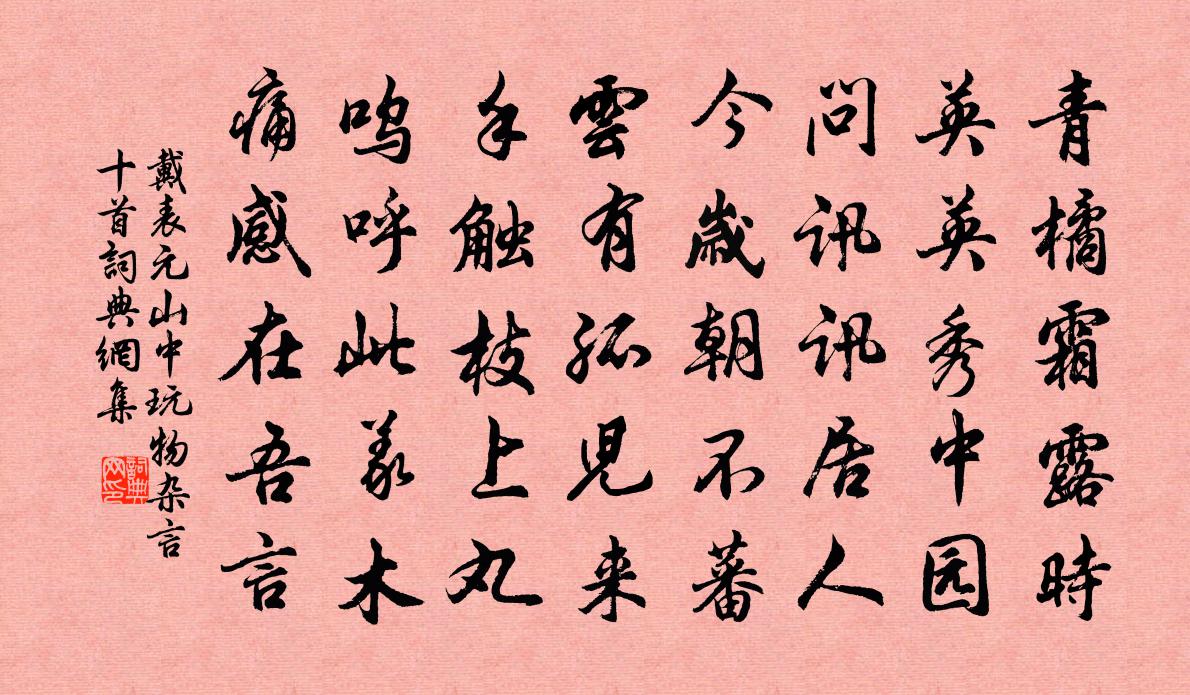 青橘霜露時
英英秀中园
問訊訊居人
今歲朝不蕃
雲有孤児来
手触枝上丸
鸣呼此義木
痛感在吾言
戴表元山中玩物杂言
十首詞典網集
詞典网印